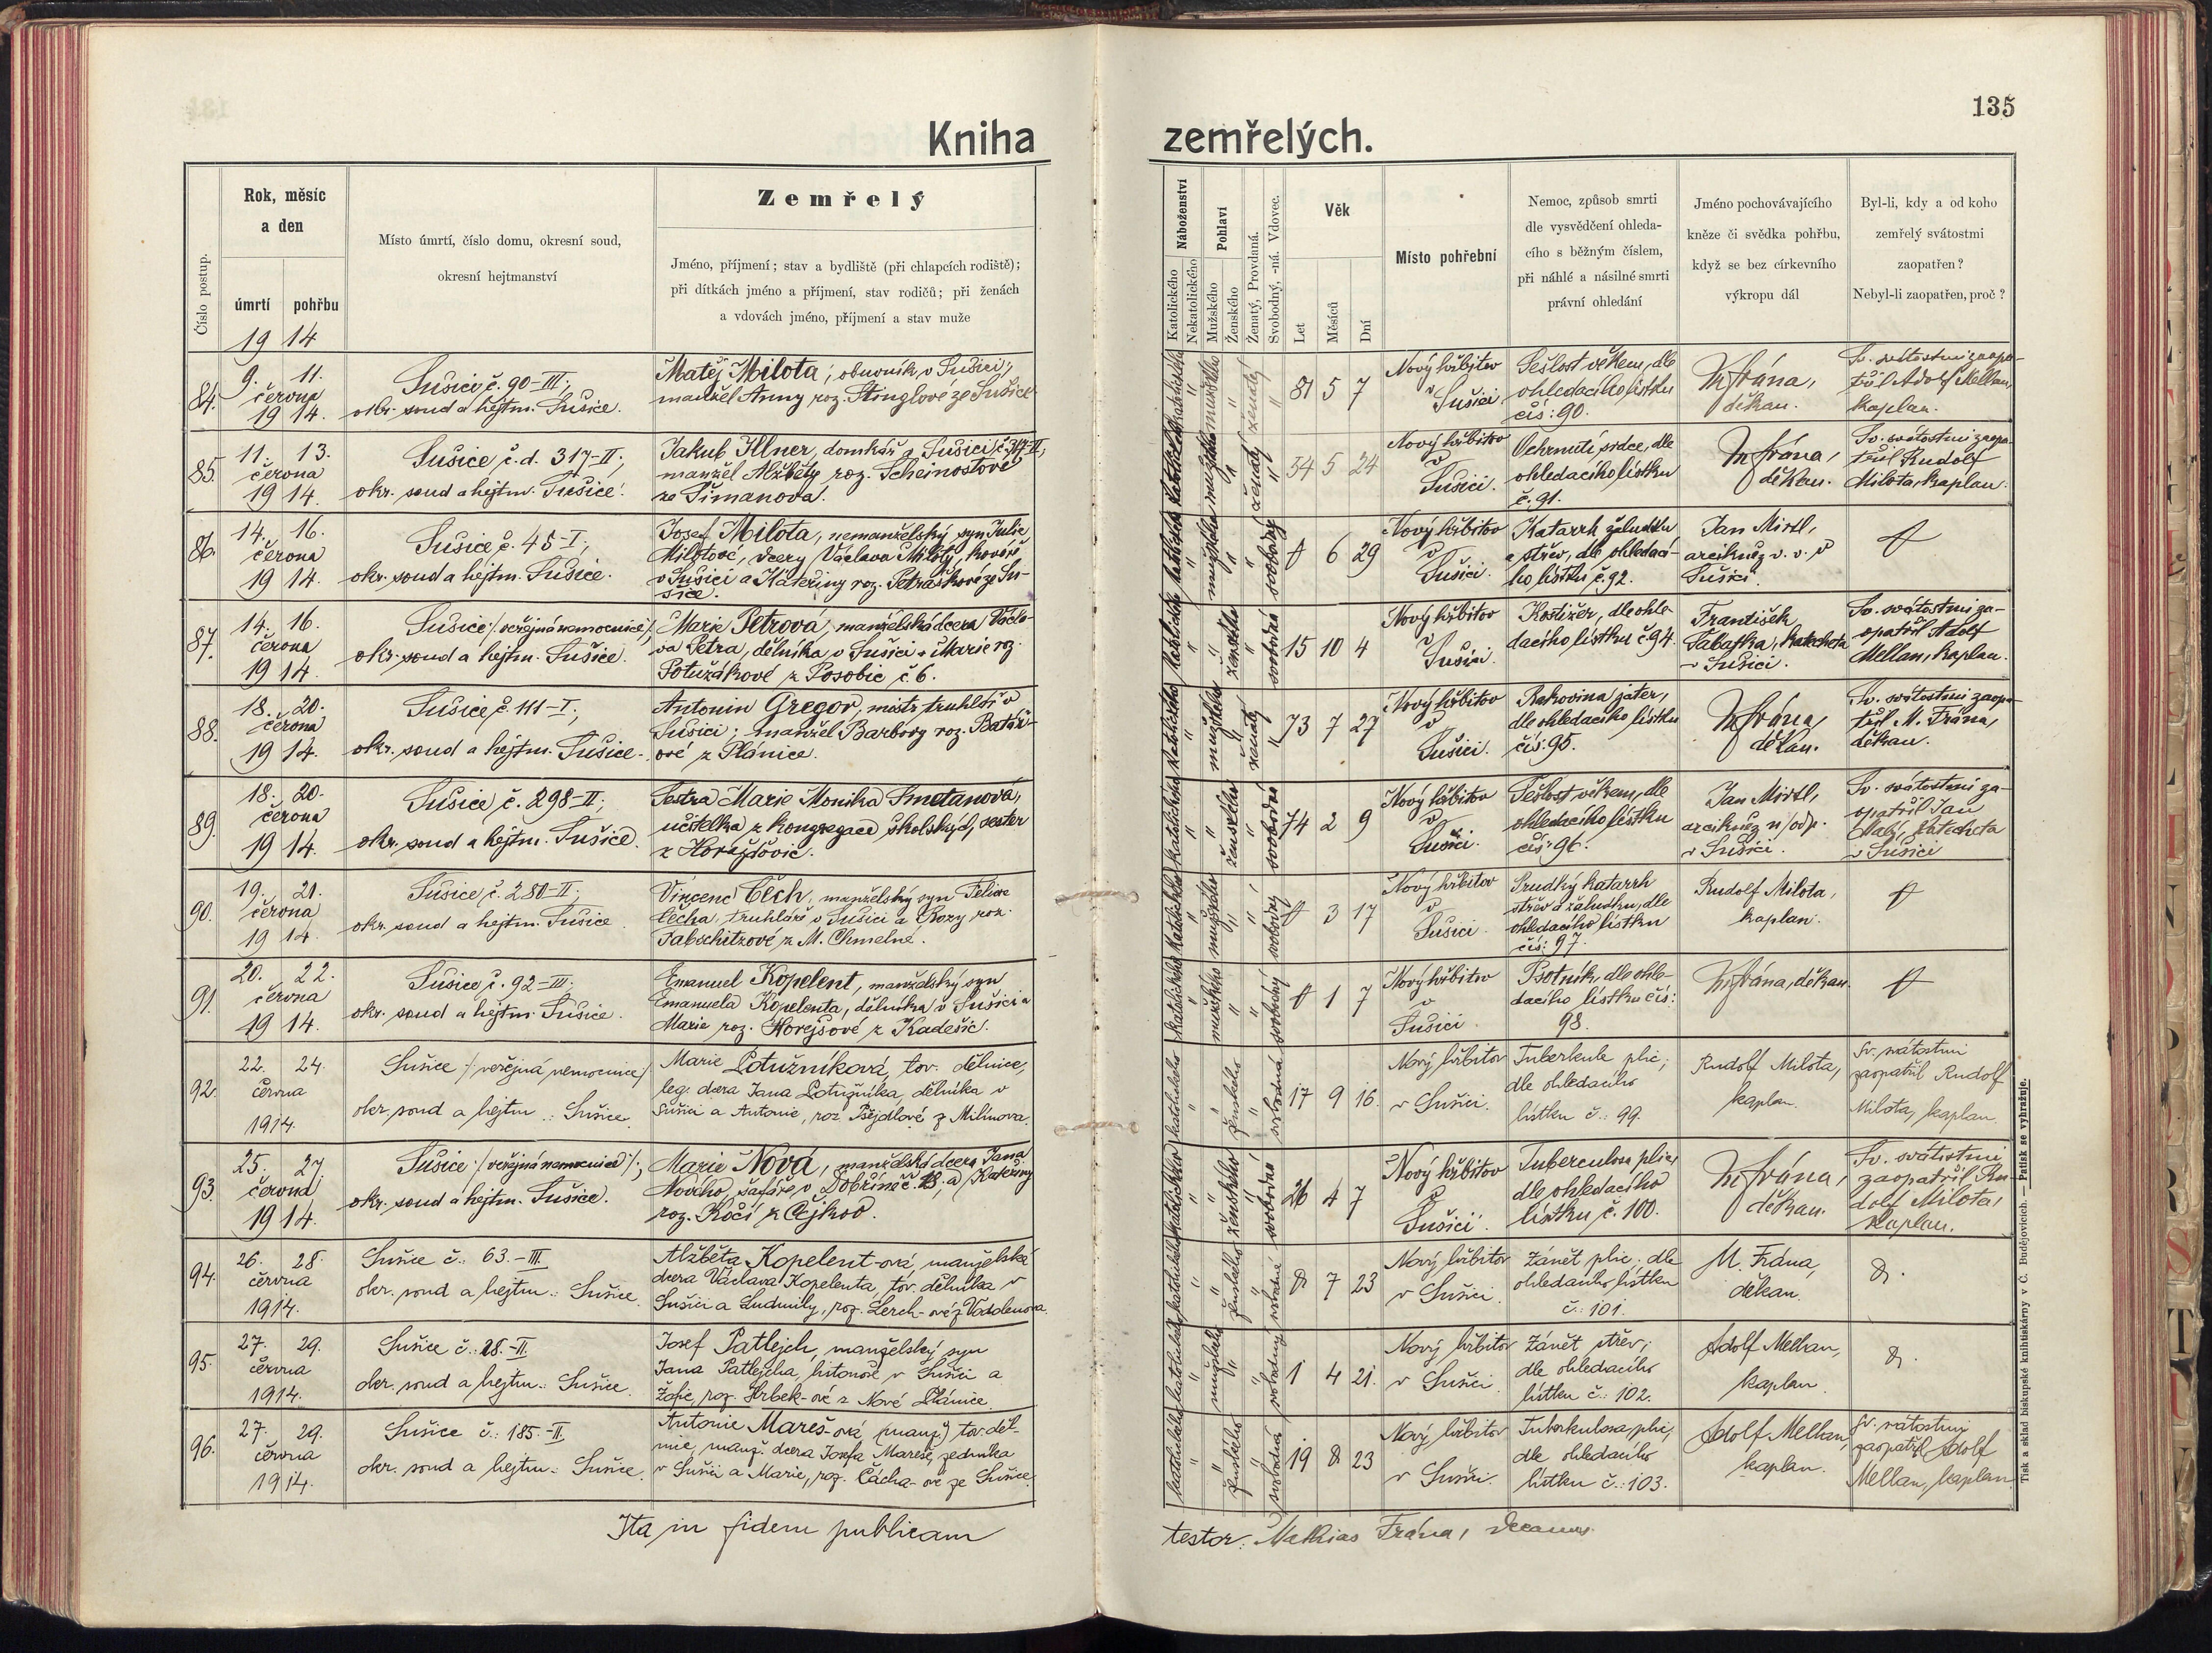 135
Kniha zemřelých.
Číslo postup.
Rok, měsíc
a den
úmrtí pohřbu
19 14
Místo úmrtí, číslo domu, okresní soud,
okresní hejtmanství
Zemřelý
Jméno, příjmení; stav a bydliště (při chlapcích rodiště);
při dítkách jméno a příjmení, stav rodičů; při ženách
a vdovách jméno, příjmení a stav muže
Náboženství
Katolického
Nekatolického
Pohlaví
Mužského
Ženského
Ženatý, Provdaná.
Svobodný, -ná. Vdovec.
Věk
Let
Měsíců
Dní
Místo pohřební
Nemoc, způsob smrti
dle vysvědčení ohleda-
cího s běžným číslem,
při náhlé a násilné smrti
právní ohledání
Jméno pochovávajícího
kněze či svědka pohřbu,
když se bez církevního
výkropu dál
Byl-li, kdy a od koho
zemřelý svátostmi
zaopatřen?
Nebyl-li zaopatřen, proč?
84.
9. 11.
června
19 14.
Sušice č. 90-III;
okr. soud a hejtm. Sušice.
Matěj Milota, obuvník v Sušici;
manžel Anny roz. Stinglové ze Sušice.
katolického
mužského
ženatý
81 5 7
Nový hřbitov
v
Sušici
Sešlost věkem, dle
ohledacího lístku
čís: 90.
M. Frána,
děkan.
Sv. svátostmi zaopa-
třil Adolf Mellan,
kaplan.
85.
11. 13.
června
19 14.
Sušice č.d. 317-II;
okr. soud a hejtm. Sušice.
Jakub Illner, domkář v Sušici č 317-II,
manžel Alžběty roz. Scheinostové
ze Šimanova.
katolického
mužského
ženatý
54 5 24
Nový hřbitov
v
Sušici.
Ochrnutí srdce, dle
ohledacího lístku
č. 91.
M. Frána,
děkan.
Sv. svátostmi zaopa-
třil Rudolf
Milota, kaplan.
86.
14. 16.
června
19 14.
Sušice č. 45-I;
okr. soud a hejtm. Sušice.
Josef Milota, nemanželský syn Julie
Milotové, dcery Václava Miloty, kováře
v Sušici a Kateřiny roz. Petráškové ze Su-
šice.
katolického
mužského
svobodný
6 29
Nový hřbitov
v
Sušici.
Katarrh žaludku
a střev, dle ohledací-
ho lístku č. 92.
Jan Mirtl,
arcikněz v. v. v
Sušici.
87.
14. 16.
června
19 14.
Sušice /: veřejná nemocnice :/
okr. soud a hejtm. Sušice.
Marie Petrová, manželská dcera Václa-
va Petra, dělníka v Sušici a Marie roz.
Potužákové z Posobic č 6.
katolického
ženského
svobodná
15 10 4
Nový hřbitov
v
Sušici.
Kostižer, dle ohle-
dacího lístku č. 94.
František
Tabatka, katecheta
v Sušici.
Sv. svátostmi za-
opatřil Adolf
Mellan, kaplan.
88.
18. 20.
června
19 14.
Sušice č. 111-I;
okr. soud a hejtm. Sušice.
Antonín Gregor, mistr truhlář v
Sušici; manžel Barbory roz. Batář-
ové z Plánice.
katolického
mužského
ženatý
73 7 27
Nový hřbitov
v
Sušici.
Rakovina jater,
dle ohledacího lístku
čís: 95.
M. Frána,
děkan.
Sv. svátostmi zaopa-
třil M. Frána,
děkan.
89.
18. 20.
června
19 14.
Sušice č. 298-II;
okr. soud a hejtm. Sušice.
Sestra Marie Monika Smetanová,
učitelka z kongregace školských sester
z Horažďovic.
katolického
ženského
svobodná
74 2 9
Nový hřbitov
v
Sušici.
Sešlost věkem, dle
ohledacího lístku
čís: 96.
Jan Mirtl,
arcikněz n/odp.
v Sušici.
Sv. svátostmi za-
opatřil Jan
katecheta
v Sušici
90.
19. 21.
června
19 14.
Sušice č. 280-II;
okr. soud a hejtm. Sušice.
Vincenc Čech, manželský syn Felixe
Čecha, truhláře v Sušici a Rozy roz.
Fabschitzové z M. Chmelné.
katolického
mužského
svobodný
3 17
Nový hřbitov
v
Sušici.
Prudký katarrh
střev a žaludku, dle
ohledacího lístku
čís: 97.
Rudolf Milota,
kaplan.
91.
20. 22.
června
19 14.
Sušice č. 92-III;
okr. soud a hejtm. Sušice.
Emanuel Kopelent, manželský syn
Emanuela Kopelenta, dělníka v Sušici a
Marie roz. Horejšové z Kadešic.
katolického
mužského
svobodný
1 7
Nový hřbitov
v
Sušici.
Psotník, dle ohle-
dacího lístku čís:
98.
M. Frána, děkan.
92.
22. 24.
června
1914.
Sušice /: veřejná nemocnice :/
okr. soud a hejtm.: Sušice.
Marie Potužníková, tov. dělnice,
leg. dcera Jana Potužníka, dělníka v
Sušici a Antonie, roz. Pejdlové z Milínova.
katolického
ženského
svobodná
17 9 16.
Nový hřbitov
v Sušici.
Tuberkule plic;
dle ohledacího
lístku č.: 99.
Rudolf Milota,
kaplan.
Sv. svátostmi
zaopatřil Rudolf
Milota, kaplan.
93.
25. 27.
června
19 14.
Sušice /: veřejná nemocnice :/;
okr. soud a hejtm. Sušice.
Marie Nová, manželská dcera Jana
Nového, šafáře v Dobříně č. 18, a Kateřiny
roz. Kočí z Čejkov.
katolického
ženského
svobodná
26 4 7
Nový hřbitov
v
Sušici.
Tuberculosa plic,
dle ohledacího
lístku č. 100.
M. Frána,
děkan.
Sv. svátostmi
zaopatřil Ru-
dolf Milota,
kaplan.
94.
26. 28.
června
1914.
Sušice č.: 63.-III.
okr. soud a hejtm.: Sušice.
Alžběta Kopelent-ová, manželská
dcera Václava Kopelenta, tov. dělníka v
Sušici a Ludmily, roz. Lerch-ové z Vodolenova.
katolického
ženského
svobodná
7 23
Nový hřbitov
v Sušici.
Zánět plic; dle
ohledacího lístku
č.: 101.
M. Frána,
děkan.
95.
27. 29.
června
1914.
Sušice č.: 28.-II.
okr. soud a hejtm.: Sušice.
Josef Patlejch, manželský syn
Jana Patlejcha, listonoše v Sušici a
Žofie, roz. Hrbek-ové z Nové Plánice.
katolického
mužského
svobodný
1 4 21.
Nový hřbitov
v Sušici.
Zánět střev;
dle ohledacího
lístku č.: 102.
Adolf Mellan,
kaplan.
96.
27. 29.
června
1914.
Sušice č.: 185.-II.
okr. soud a hejtm.: Sušice.
Antonie Mareš-ová (manž.) tov. děl-
nice, manž. dcera Josefa Mareše, zedníka
v Sušici a Marie, roz. Čácha-ové ze Sušice.
katolického
ženského
svobodná
19 8 23
Nový hřbitov
v Sušici.
Tuberkulosa plic;
dle ohledacího
lístku č.: 103.
Adolf Mellan,
kaplan.
Sv. svátostmi
zaopatřil Adolf
Mellan, kaplan.
Ita in fidem publicam
testor: Mathias Frána, decanus.
Tisk a sklad biskupské knihtiskárny v Č. Budějovicích. — Patisk se vyhražuje.